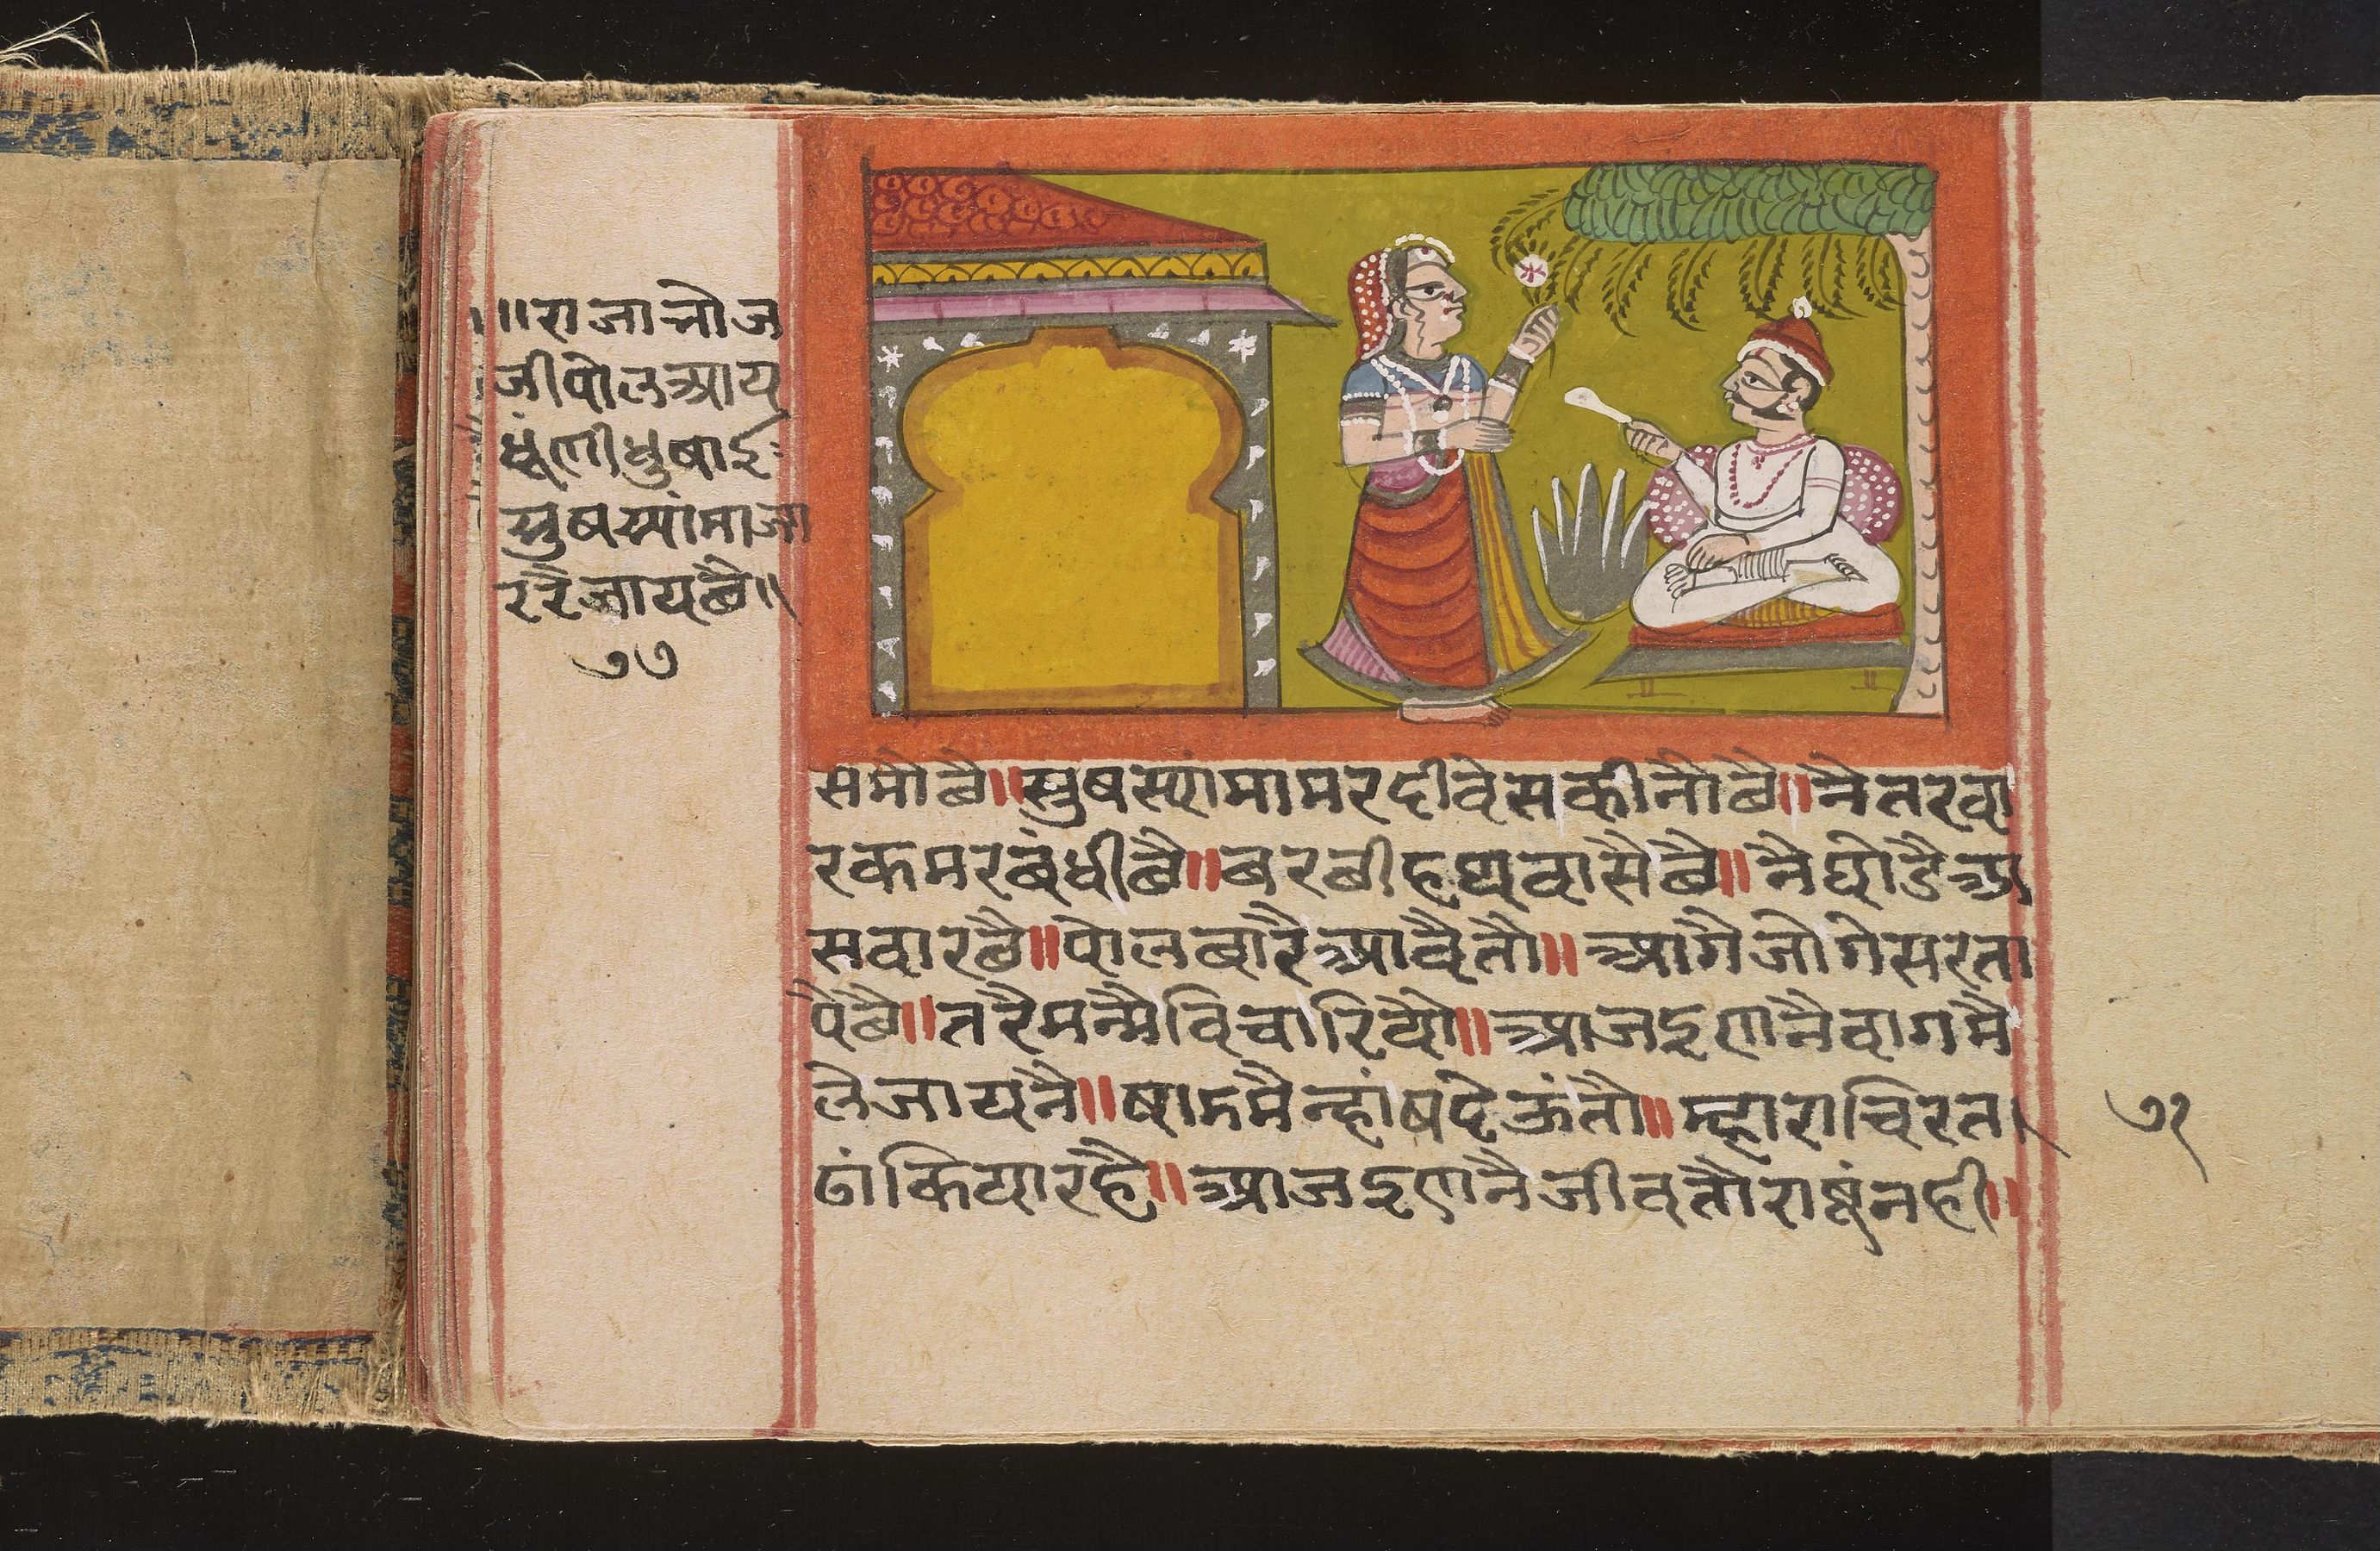 ॥राजा नोज
जी पोल आय
धूंणी धुषाई:
सुष सांमा जा
र रै जाय छै॥
७७
समो छै॥सुष सांमा मरदी वेस कीनो छै॥नै तरवा
र कमर बंधी छै॥बरछी हथवासै छै॥नै घोडै अ
सवार छै॥पोल बारै आवै तौ॥आगै जोगेसर ता
पै छै॥तरै मन्मै विचारियौ॥आज इणनै वागमै
ले जायनै॥षाममै न्हांष देऊं तौ॥म्हारा चिरत
ढांकिया रहै॥आज इणनै जीवतौ राषूं नही॥
७१